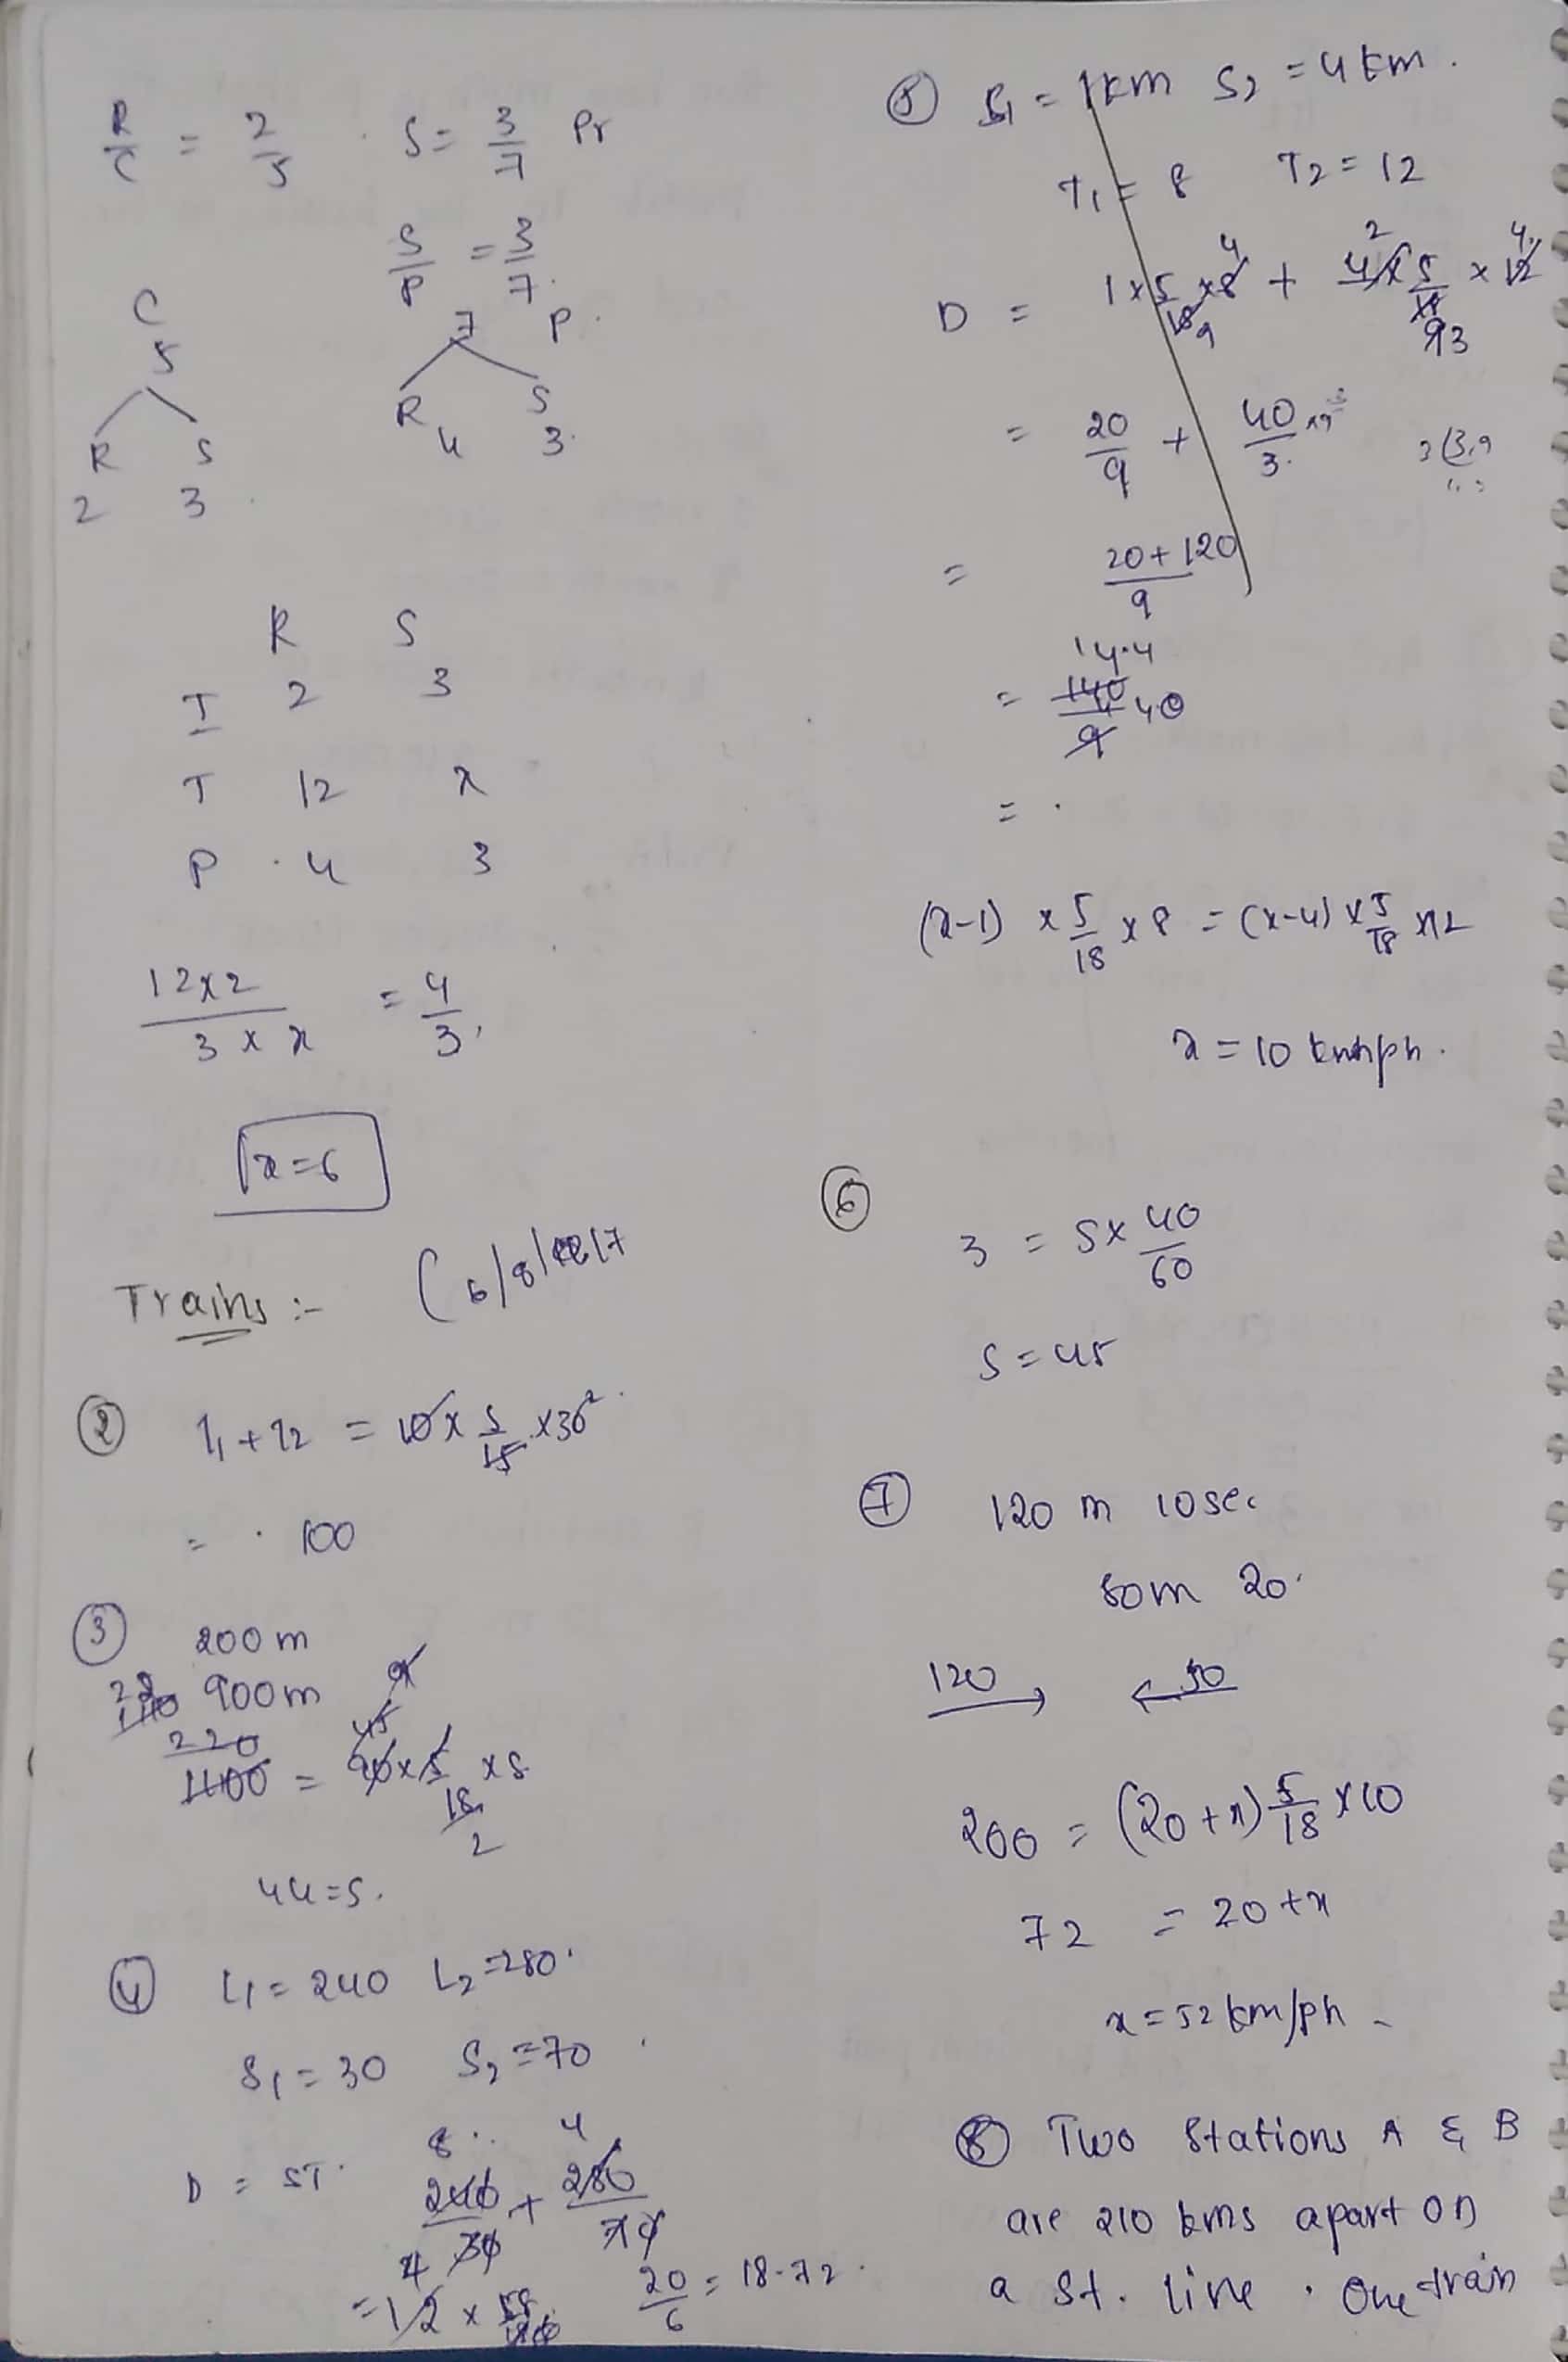 R/C = 2/5 . S = 3/7 Pr
S/P = 3/7.
C
5
R S
2 3
7 P.
R S
4 3.
R S
I 2 3
T 12 x
P . 4 3
12x2 / 3 x x = 4/3,
x=6
Trains :- (6/8/17
② l1 + l2 = 10 x 5/15 x 30 2
= . 100
③ 200 m
900 m
220
1100 = 90 x 5/18 x s
45
2
44 = s.
④ L1 = 240 L2 = 280.
S1 = 30 S2 = 70 .
D = ST. 240/30 + 280/70
8 4
= 12 x
20/6 = 18.72.
⑤ S1 = 1km S2 = 4km.
T1 = 8 T2 = 12
D = 1 x 5/18 x 8 + 4 x 5/18 x 12
= 20/9 + 40/3.
= 20+120 / 9
14.4
= 140/9 40
= .
(x-1) x 5/18 x 8 = (x-4) x 5/18 x 12
x = 10 kmph.
⑥ 3 = S x 40/60
S = 45
⑦ 120 m 10 sec
80m 20.
120 80
200 = (20 + x) 5/18 x 10
72 = 20 + x
x = 52 km/ph -
⑧ Two Stations A & B
are 210 kms apart on
a St. line . One train